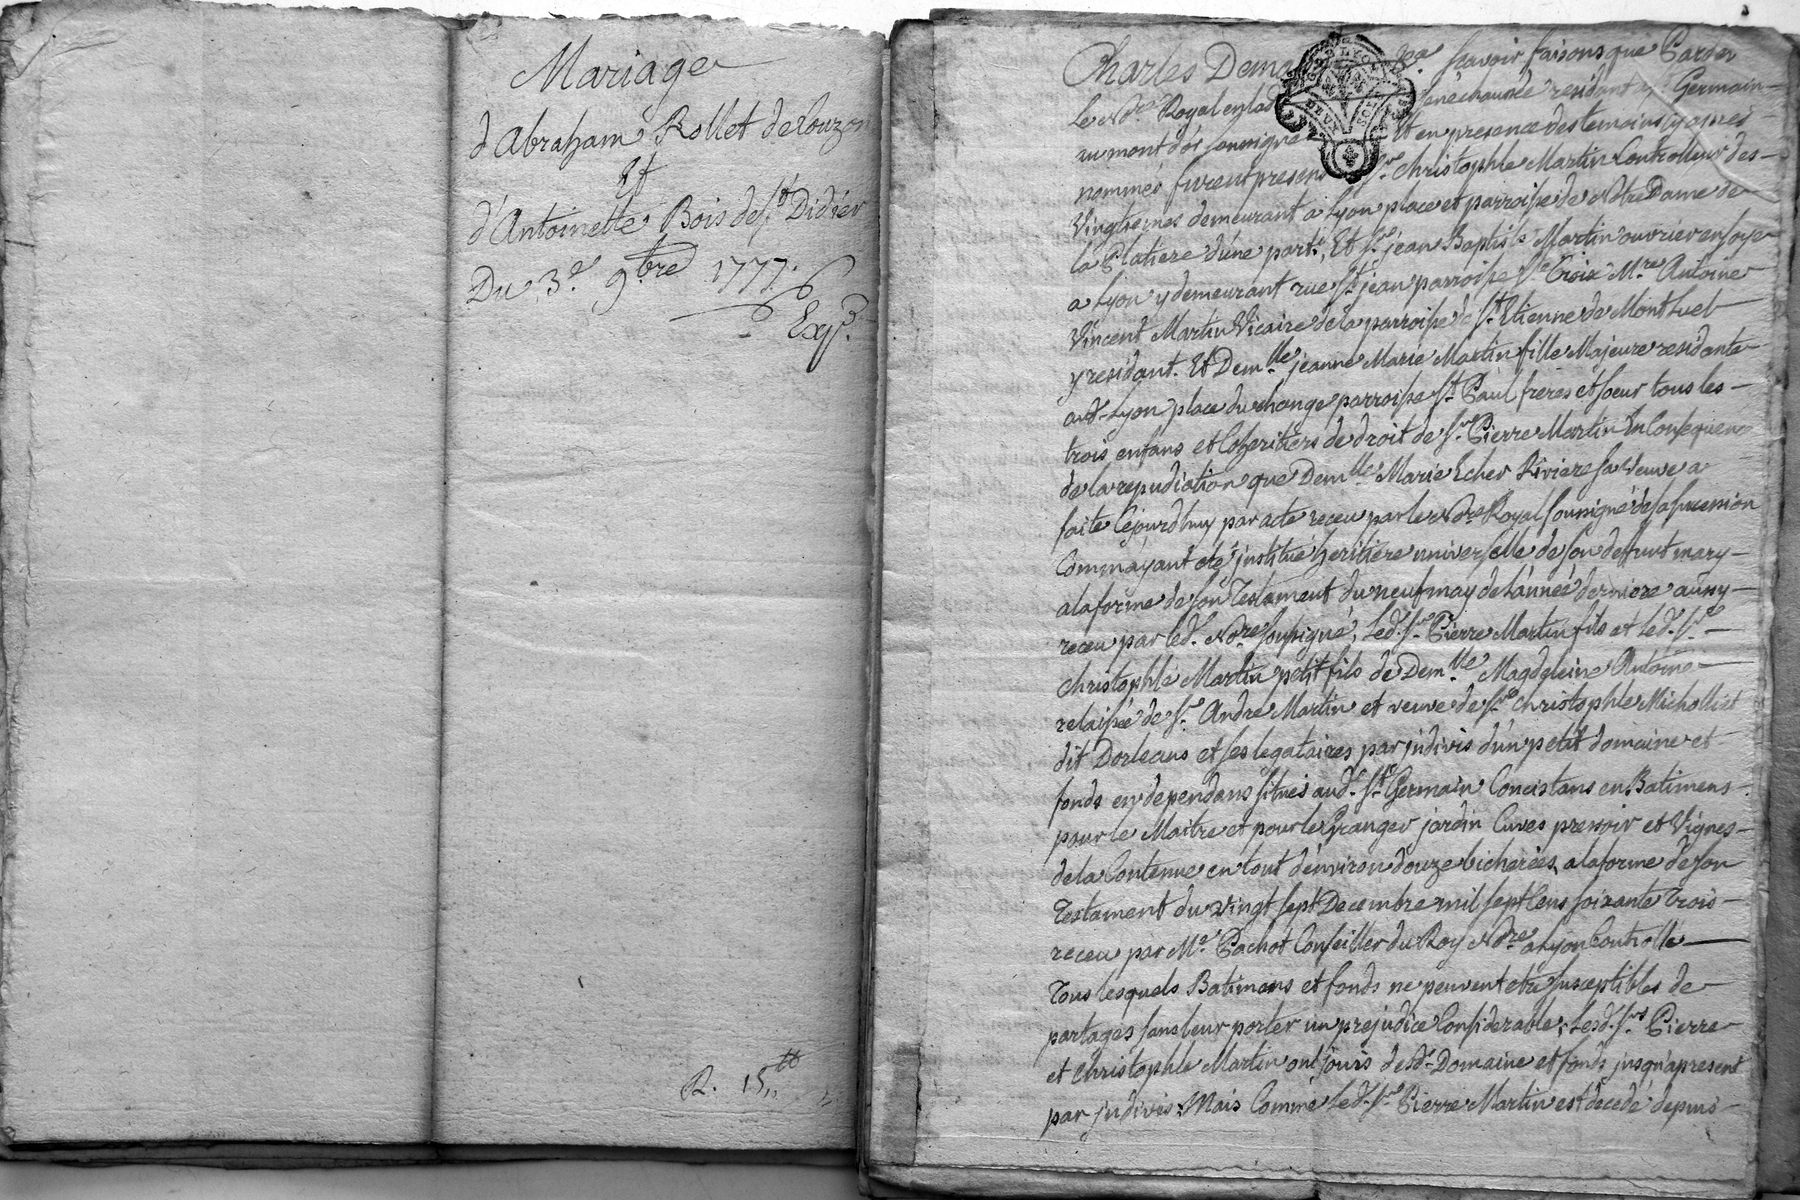 Mariage
d'Abraham Rollet de Couzon
Et
d'Antoinette Bois de St Didier
Du 3e 9bre 1777.
Exp.
R. 15
Charles Dema scavoir faisons que Pardev
le Nore Royal en lad senechaussée residant a St Germain
au mont d'or soussigné Et en presence des temoins cy apres
nommés furent presens Sr. Christophle Martin Controlleur des
Vingtiemes demeurant a Lyon place et parroisse de Notre Dame de
la Platiere d'une part, Et Sr. jean Baptiste Martin ouvrier en soye
a Lyon y demeurant rue St jean parroisse Ste Croix Mre Antoine
Vincent Martin Vicaire de la parroisse de St. Etienne de Montluel
y residant. Et Demlle jeanne Marie Martin fille Majeure residante
aud. Lyon place du change parroisse St. Paul freres et soeur tous les
trois enfans et Coheritiers de droit de Sr. Pierre Martin En Consequence
de la repudiation que Demlle Marie Echer Riviere sa Veuve a
faite Cejourd'huy par acte receu par le Nore Royal soussigné de sa succession
Comme ayant eté instituée heritiere universelle de son deffunt mary
a la forme de son Testament du neuf may de l'année derniere aussy
receu par led. Nore soussigné, Led. Sr. Pierre Martin fils et led. Sr.
Christophle Martin petit fils de Demlle Magdeleine Antoine
relaissée de Sr. André Martin et veuve de Sr. Christophle Micholliet
dit Dorleans et ses legataires par indivis d'un petit domaine et
fonds en dependans situés aud. St Germain Concistans en Batimens
pour le Maitre et pour le Granger jardin Cuves pressoir et Vignes
de la Contenue en tout d'environ douze bicherées, a la forme de son
Testament du vingt sept Decembre mil sept Cens soixante Trois
receu par Me. Pachot Conseiller du Roy Nore a Lyon Controllé
Tous lesquels Batimens et fonds ne peuvent etre susceptibles de
partages sans leur porter un prejudice Considerable, Lesd. Srs Pierre
et Christophle Martin ont jouis desd. Domaine et fonds jusqu'a present
par indivis; Mais Comme Led. Sr. Pierre Martin est decedé depuis